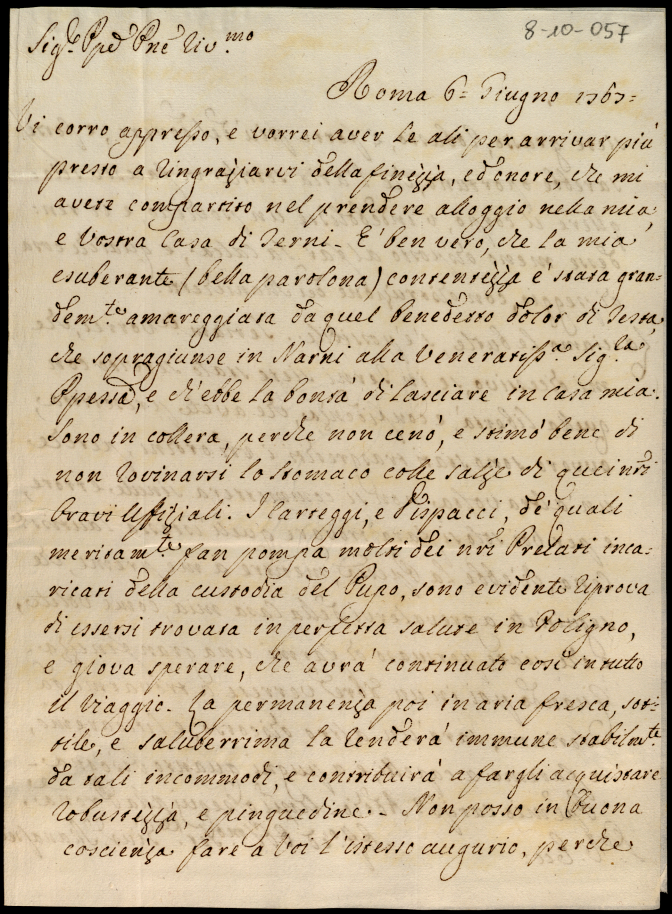 8-10-057
Sig.e Ppe Pne Riv.mo
Roma 6= Giugno 1767=
Vi corro appresso, e vorrei aver le ali per arrivar più
presto a ringraziarvi della finezza, ed onore, che mi
avete compartito nel prendere alloggio nella mia,
e vostra Casa di Terni. E' ben vero, che la mia
esuberante (bella parolona) contentezza e' stata gran=
dem.te amareggiata da quel benedetto dolor di Testa,
che sopragiunse in Narni alla Veneratiss.a Sig.ra
Ppessa, e ch'ebbe la bontà di lasciare in Casa mia.
Sono in collera, perche non cenò, e stimò bene di
non rovinarsi lo stomaco colle salze di quei nri
bravi Uffiziali. I Carteggi, e Dispacci, de' quali
meritam.te fan pompa molti dei nri Prelati inca=
ricati della custodia del Pupo, sono evidente riprova
di essersi trovata in perfetta salute in Foligno,
e giova sperare, che avrà continuato così in tutto
il viaggio. La permanenza poi in aria fresca, sot=
tile, e saluberrima la renderà immune stabilm.te
da tali incommodi, e contribuirà a fargli acquistare
robustezza, e pinguedine. Non posso in buona
coscienza fare a Voi l'istesso augurio, perche